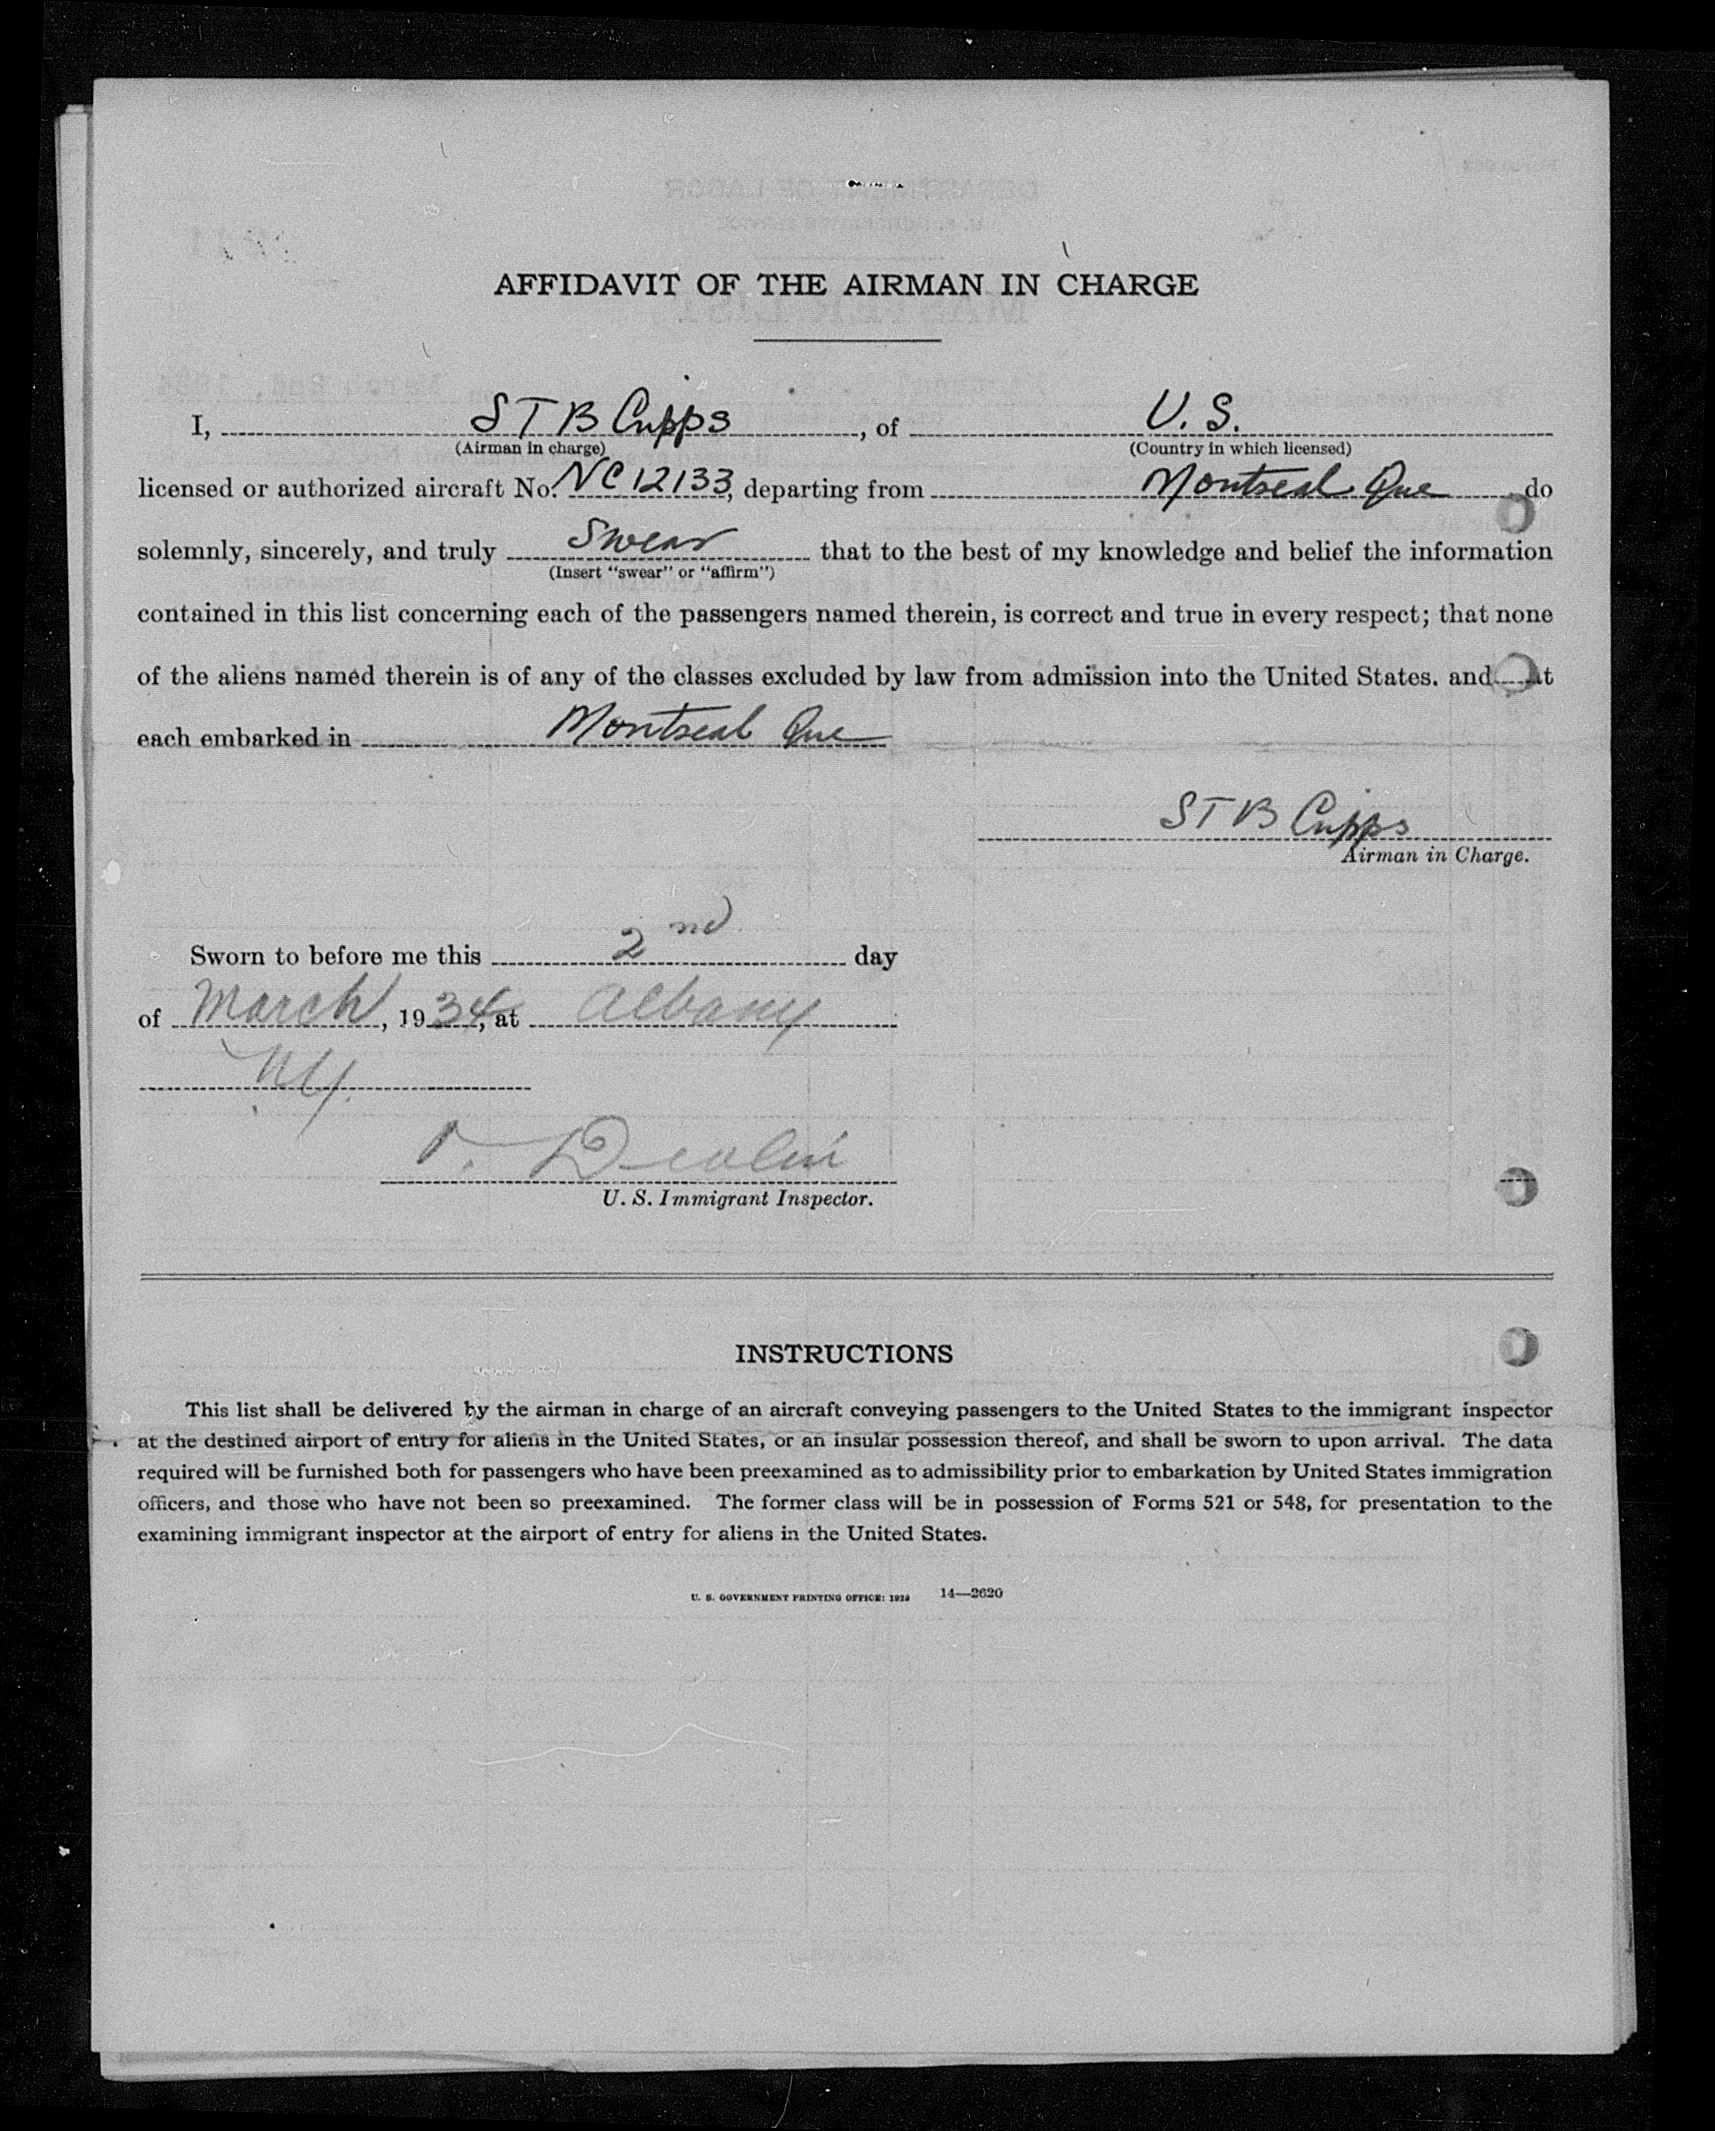 AFFIDAVIT OF THE AIRMAN IN CHARGE
I, S T B Cupps, of U. S.
(Airman in charge) (Country in which licensed)
licensed or authorized aircraft No. NC 12133, departing from Montreal Que do
solemnly, sincerely, and truly Swear that to the best of my knowledge and belief the information
(Insert "swear" or "affirm")
contained in this list concerning each of the passengers named therein, is correct and true in every respect; that none
of the aliens named therein is of any of the classes excluded by law from admission into the United States. and at
each embarked in Montreal Que
S T B Cupps
Airman in Charge.
Sworn to before me this 2nd day
of March, 1934, at Albany
N.Y.
Devlin
U. S. Immigrant Inspector.
INSTRUCTIONS
This list shall be delivered by the airman in charge of an aircraft conveying passengers to the United States to the immigrant inspector
at the destined airport of entry for aliens in the United States, or an insular possession thereof, and shall be sworn to upon arrival. The data
required will be furnished both for passengers who have been preexamined as to admissibility prior to embarkation by United States immigration
officers, and those who have not been so preexamined. The former class will be in possession of Forms 521 or 548, for presentation to the
examining immigrant inspector at the airport of entry for aliens in the United States.
U. S. GOVERNMENT PRINTING OFFICE: 14—2620